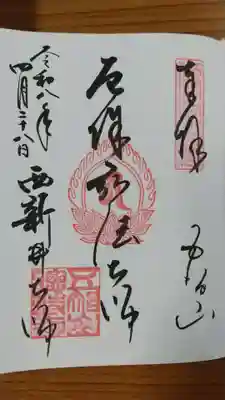 奉拝
五智山
厄除弘法大師
令和八年
四月二十八日
西新井大師